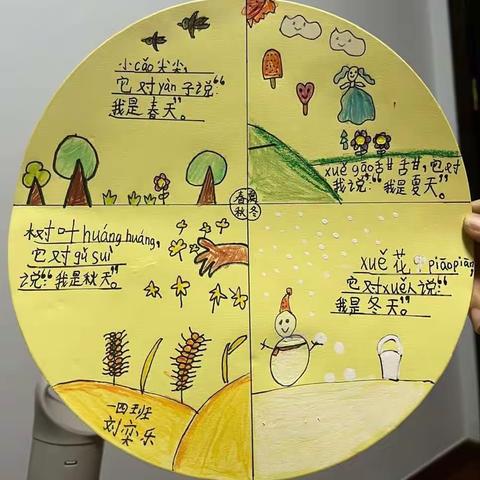 小cǎo尖尖，
它对yàn子说：“
我是春天”。
xuě gāo甜甜，它对
我说：“我是夏天”。
春夏
秋冬
树叶huánghuáng，
它对gǔ suì
说：“我是秋天”。
xuě花piāopiāo，
它对xuě人说：“
我是冬天”。
一四班
刘奕乐